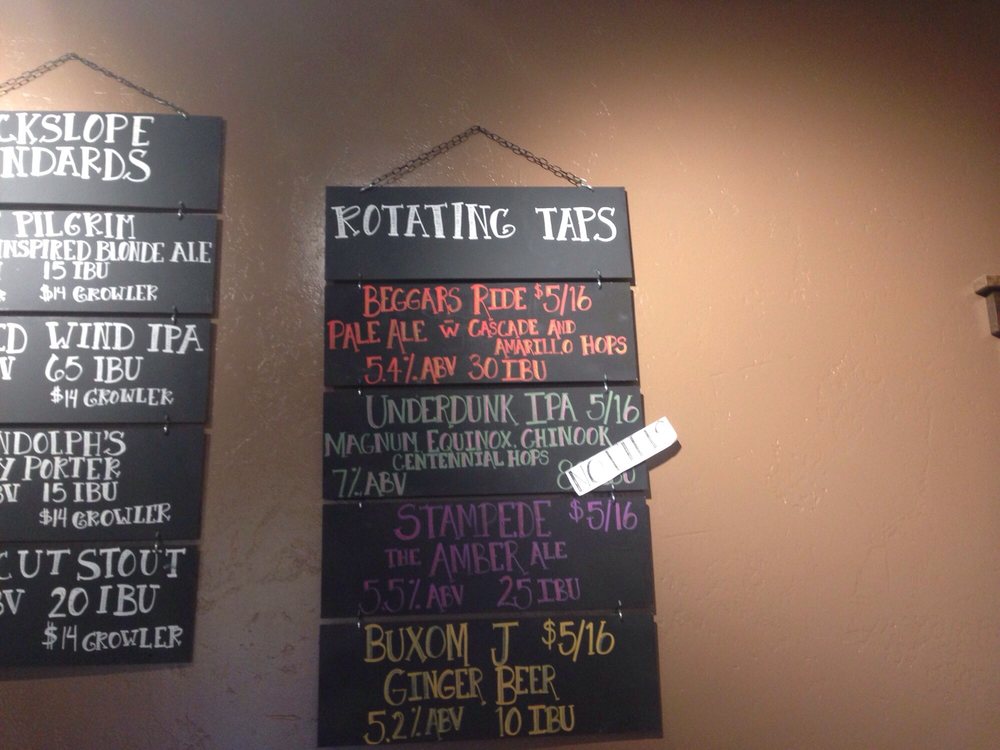 CKSLOPE
NDARDS
PILGRIM
INSPIRED BLONDE ALE
15 IBU
$14 GROWLER
ED WIND IPA
V 65 IBU
$14 GROWLER
NDOLPH'S
Y PORTER
BV 15 IBU
$14 GROWLER
CUT STOUT
BV 20 IBU
$14 GROWLER
ROTATING TAPS
BEGGARS RIDE $5/16
PALE ALE W CASCADE AND
AMARILLO HOPS
5.4% ABV 30 IBU
UNDERDUNK IPA 5/16
MAGNUM, EQUINOX, CHINOOK
CENTENNIAL HOPS
7% ABV
STAMPEDE $5/16
THE AMBER ALE
5.5% ABV 25 IBU
BUXOM J $5/16
GINGER BEER
5.2% ABV 10 IBU